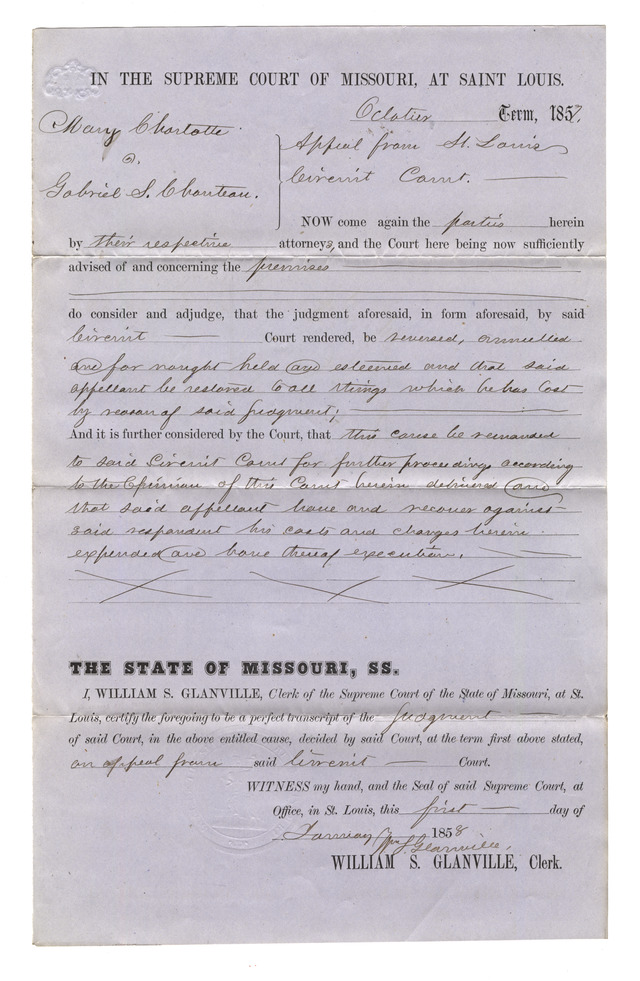 IN THE SUPREME COURT OF MISSOURI, AT SAINT LOUIS.
October Term, 1857.
Mary Charlotte
v.
Gabriel S. Chouteau.
Appeal from St. Louis
Circuit Court.
NOW come again the parties herein
by their respective attorneys, and the Court here being now sufficiently
advised of and concerning the premises
do consider and adjudge, that the judgment aforesaid, in form aforesaid, by said
Circuit Court rendered, be reversed, annulled
and for naught held and esteemed and that said
appellant be restored to all things which he has lost
by reason of said judgment;
And it is further considered by the Court, that this cause be remanded
to said Circuit Court for further proceedings according
to the Opinion of this Court herein delivered and
that said appellant have and recover against
said respondent his costs and charges herein
expended and have thereof execution.
THE STATE OF MISSOURI, SS.
I, WILLIAM S. GLANVILLE, Clerk of the Supreme Court of the State of Missouri, at St.
Louis, certify the foregoing to be a perfect transcript of the judgment
of said Court, in the above entitled cause, decided by said Court, at the term first above stated,
on appeal from said Circuit Court.
WITNESS my hand, and the Seal of said Supreme Court, at
Office, in St. Louis, this first day of
January 1858
Wm S. Glanville,
WILLIAM S. GLANVILLE, Clerk.